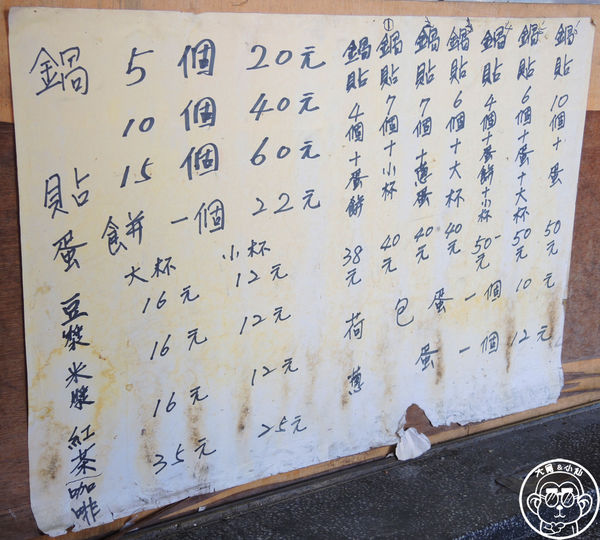 鍋貼 5個 20元
10個 40元
15個 60元
蛋餅 一個 22元
大杯 小杯
豆漿 16元 12元
米漿 16元 12元
紅茶 16元 12元
咖啡 35元 25元
鍋貼10個+蛋 50元
鍋貼6個+蛋+大杯 50元
鍋貼4個+蛋餅+小杯 50元
鍋貼6個+大杯 40元
鍋貼7個+蔥蛋 40元
①鍋貼7個+小杯 40元
鍋貼4個+蛋餅 38元
荷包蛋一個10元
蔥蛋一個12元